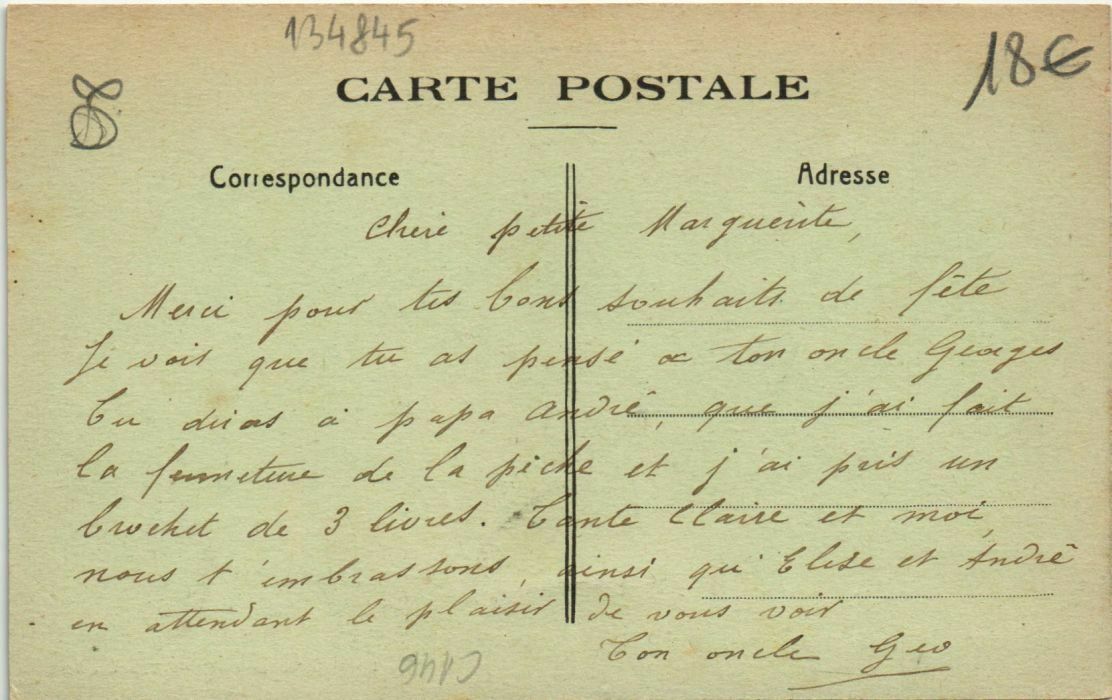 134845
18€
CARTE POSTALE
Correspondance
Adresse
Chère petite Marguerite,
Merci pour tes bons souhaits de fête
Je vois que tu as pensé a ton oncle Georges
Tu diras à papa André, que j'ai fait
la fermeture de la pêche et j'ai pris un
brochet de 3 livres. Tante Claire et moi,
nous t'embrassons, ainsi qu'Elise et André
en attendant le plaisir de vous voir
Ton oncle Geo
C146